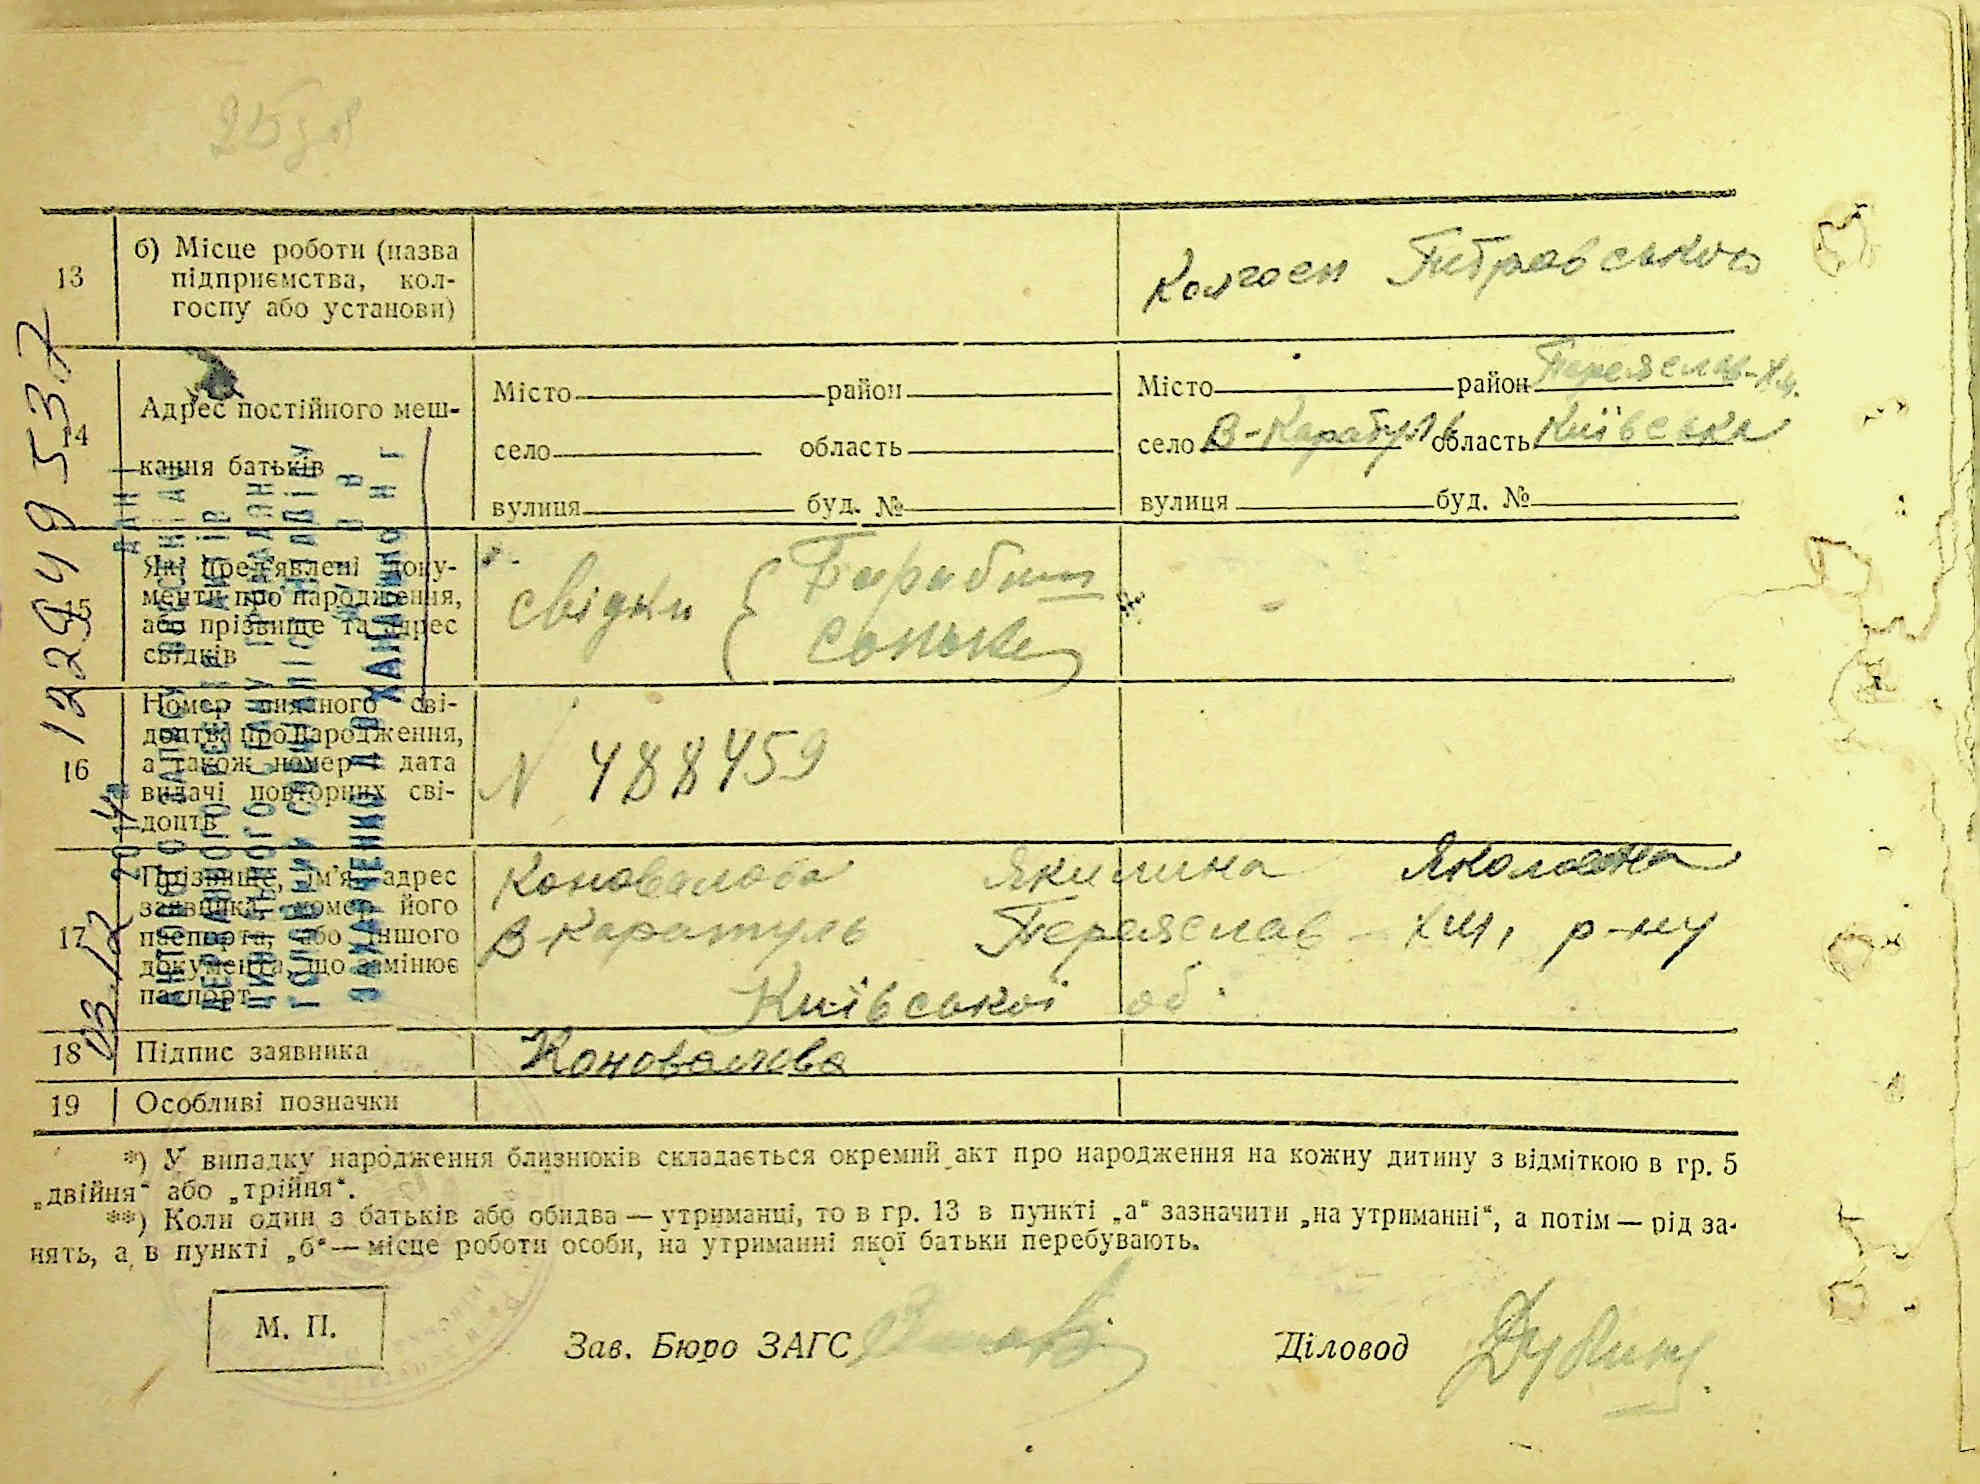 13 б) Місце роботи (назва
підприємства, кол-
госпу або установи)
Колгосп Питровського
14 Адрес постійного меш-
кання батьків
Місто район
село область
вулиця буд. №
Місто район Переяслав-Хм.
село В-Каратуль область Київська
вулиця буд. №
15 Які пред'явлені доку-
менти про народження,
або прізвище та адрес
свідків
свідки
16 Номер виданого сві-
доцтва про народження,
а також номер і дата
видачі повторних сві-
доцтв
N 488459
17 Прізвище, ім'я, адрес
заявника, номер його
паспорта, або іншого
документа, що замінює
паспорт
Коновалова Якилина Яколовна
В-Каратуль Переяслав-Хм, р-ну
Київської об.
18 Підпис заявника
Коновалова
19 Особливі позначки
*) У випадку народження близнюків складається окремий акт про народження на кожну дитину з відміткою в гр. 5
„двійня“ або „трійня“.
**) Коли один з батьків або обидва — утриманці, то в гр. 13 в пункті „а“ зазначити „на утриманні“, а потім — рід за-
нять, а в пункті „б“ — місце роботи особи, на утриманні якої батьки перебувають.
М. П.
Зав. Бюро ЗАГС
Діловод